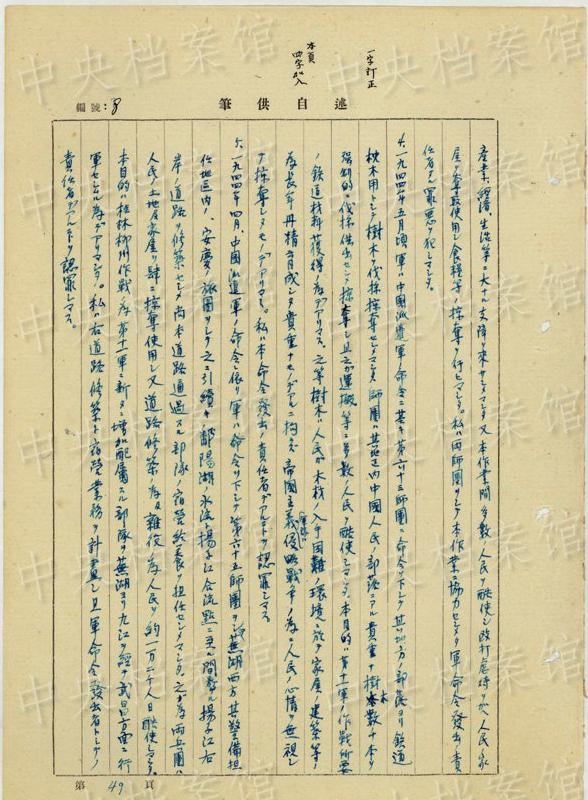 中央档案馆
一字訂正
本頁
四字加入
編號:8
筆供自述
産業、経済、生活等ニ大ナル支障ヲ来サシメマシタ又本作業間多数人民ヲ酷使シ殴打虐待ヲ加ヘ人民ノ家
屋ヲ奪取使用シ食糧等ノ掠奪ヲ行ヒマシタ。私ハ両師団ヲシテ本作業ニ協力セシメタ軍命令発出ノ責
任者タル罪悪ヲ犯シマシタ。
4、一九四四年五月頃軍ハ中国派遣軍ノ命令ニ基キ第六十三師団ニ命令ヲ下シテ其地方ノ部落ヨリ鉄道
枕木用トシテ樹木ヲ伐採掠奪セシメマシタ 師団ハ其地区内中国人民ノ部落ニアル貴重ナ樹木数千本ヲ
強制的ニ伐採供出セシメ掠奪シ且之ガ運搬等ニ多数ノ人民ヲ酷使シマシタ。本目的ハ第十一軍ノ作戦所要
ノ鉄道材料獲得ノ為デアリマス。之等樹木ハ人民ガ木材ノ入手困難ノ環境ニ於テ家屋ノ建築等ノ
為長年丹精育成シタ貴重ナモノデアルニ拘ラズ帝国主義侵略戦争ノ為ニ人民ノ心情ヲ無視シ
テ掠奪シタモノデアリマス。私ハ本命令発出ノ責任者デアルコトヲ認罪シマス
5、一九四四年四月、中国派遣軍ノ命令ニ依リ軍ハ命令ヲ下シテ第六十五師団ヲシテ蕪湖西方其警備担
任地区内ノ、安慶ノ旅団ヲシテ之ニ引続キ鄱陽湖水流ト揚子江合流点ニ至ル間ノ揚子江右
岸ノ道路ヲ修築セシメ尚本道路通過スル部隊ノ宿営給養ヲ担任セシメマシタ。之ガ為両兵団ハ
人民ノ土地及家屋ヲ肆ニ掠奪使用シ又道路修築ノ為及雑役ノ為人民ヲ約一万二千人日酷使シマシタ。
本目的ハ桂林柳州作戦ノ為第十一軍ニ新タニ増加配属スル部隊ヲ蕪湖ヨリ九江ヲ経テ武昌方面ニ行
軍セシムル為デアリマシタ。私ハ右道路修築ト宿営業務ヲ計画シ且軍命令発出者トシテノ
責任者デアルコトヲ認罪シマス。
第 49 頁